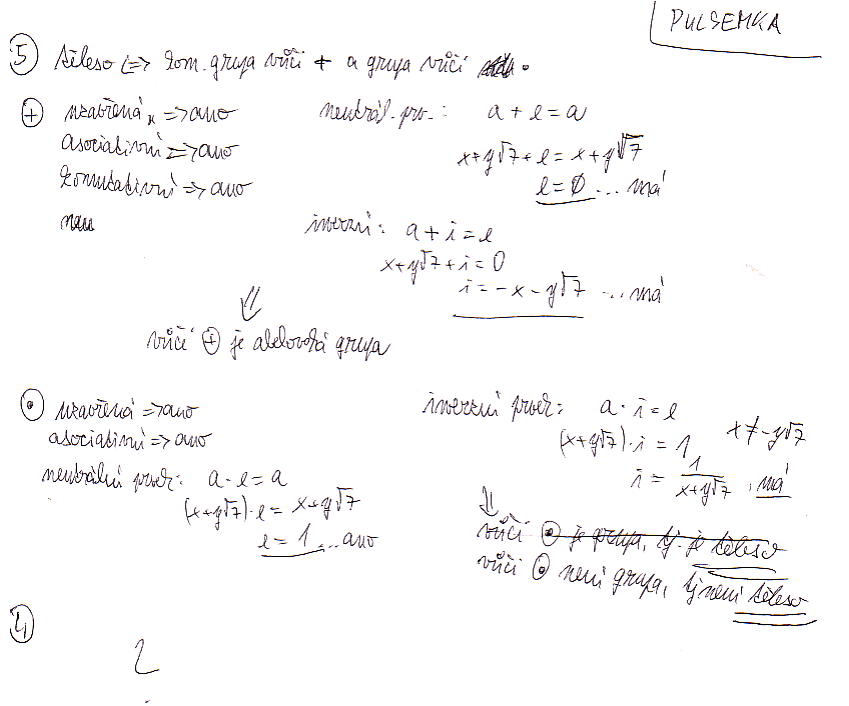 PULSEMKA
5 těleso <=> kom. grupa vůči + a grupa vůči •
+ uzavřená => ano
asociativní => ano
komutativní => ano
neutrál. prv.: a + e = a
x+y√7 + e = x+y√7
e = 0 ... má
inverzní: a + i = e
x+y√7 + i = 0
i = -x - y√7 ... má
⇓
vůči + je abelovská grupa
• uzavřená => ano
asociativní => ano
neutrální prvek: a · e = a
(x+y√7) · e = x+y√7
e = 1 ... ano
inverzní prvek: a · i = e
(x+y√7) · i = 1, x ≠ -y√7
i = 1/(x+y√7) . má
⇓
vůči • je grupa, tj. je těleso
vůči • není grupa, tj není těleso
4
2